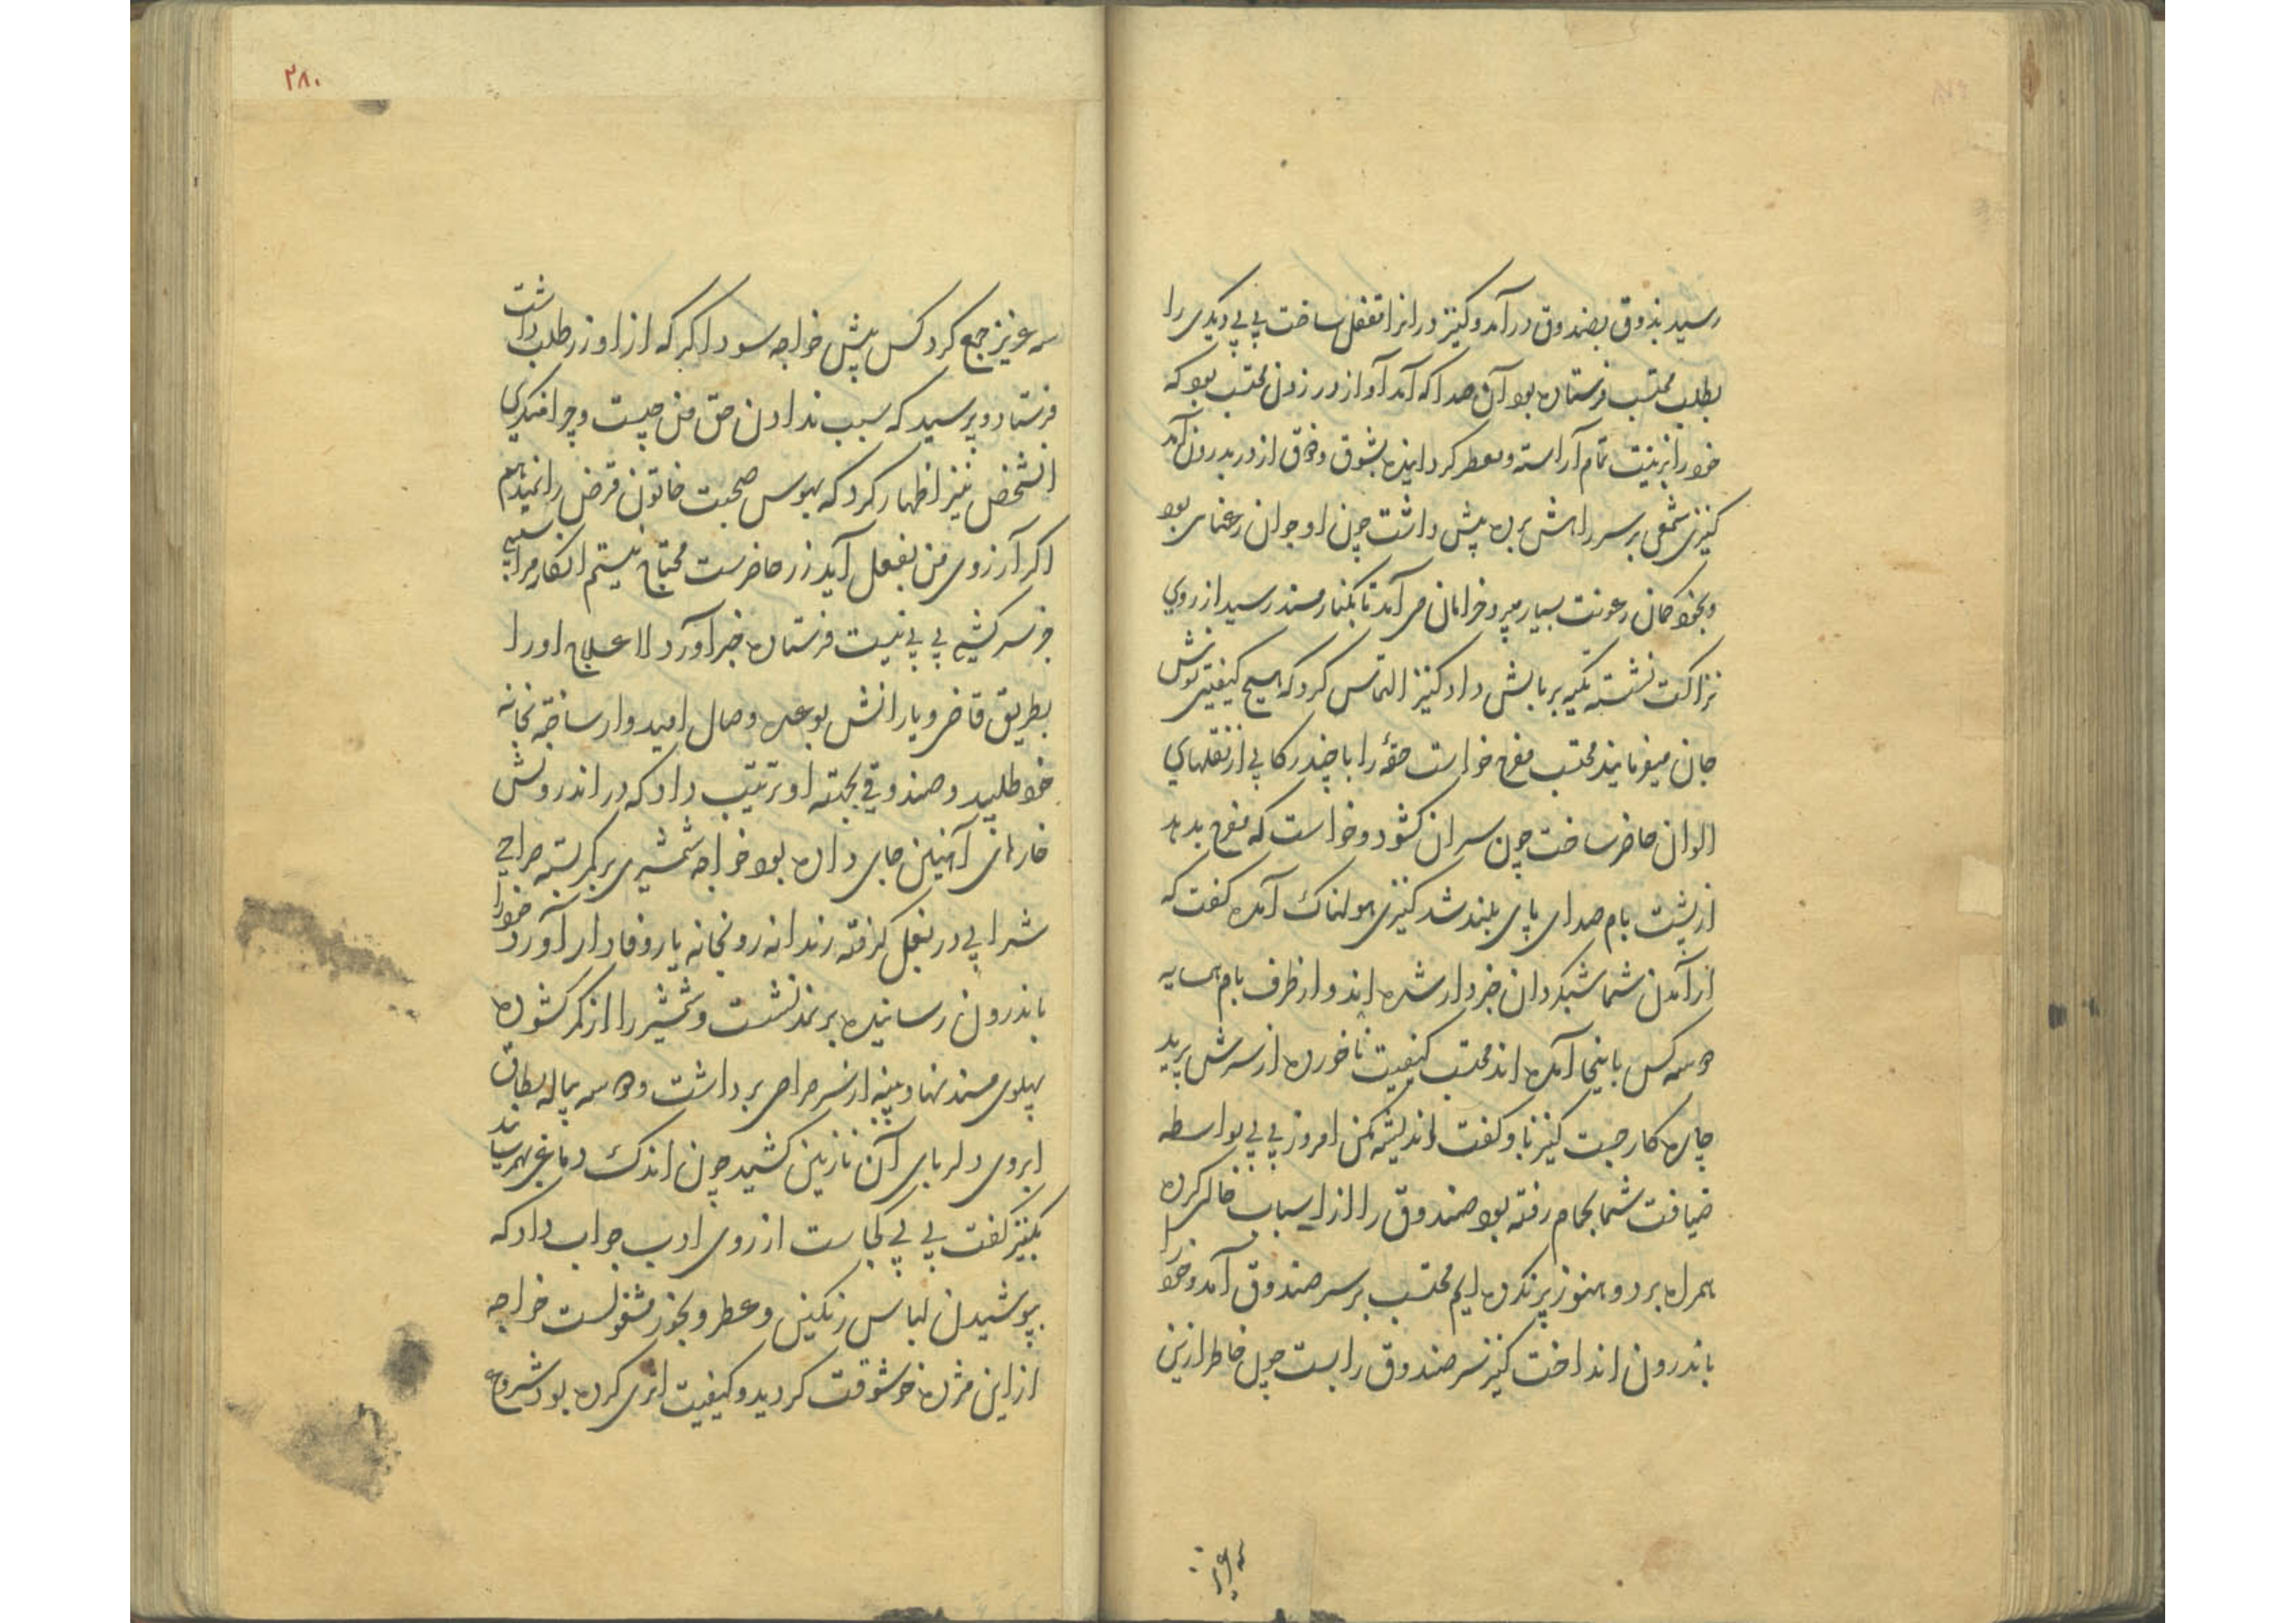 رسید بذوق بصندوق درآمد و کنیز در انرا قفل ساخت بی بی دیگری را
بطلب محتسب فرستاده بود آن صدا که آمد آواز در زدن محتسب بود که
خود را بزینت تمام آراسته و معطر گردانیده بشوق و ذوق از در بدرون آمد
کنیزی شمعی بر سر راهش برده پیش داشت چون او جوان رعنای بود
و بخود کمان رعونت بسیار میبرد خرامان می آمد تا بکنار مسند رسید از روی
نزاکت نشسته تکیه بر بالش داد کنیز التماس کرد که هیچ کیفیتی نوش
جان میفرمایند محتسب مفرح خواست حقهٔ را با چند رکابی از نقلهای
الوان حاضر ساخت چون سر ان کشود و خواست که مفرح بدهد
از پشت بام صدای پای بلند شد کنیزی هولناک آمده گفت که
از آمدن شما شبگردان خبردار شده اند و از طرف بام همسایه
دو سه کس باینجا آمده اند محتسب کیفیت ناخورده از سرش پرید
چاره کار جست کنیز باو گفت اندیشه مکن امروز بی بی بواسطه
ضیافت شما بحمام رفته بود صندوق را از اسباب خالی کرده
همراه برد و هنوز پر نکرده ایم محتسب بر سر صندوق آمد و خود را
باندرون انداخت کنیز سر صندوق را بست چون خاطر از این
سه عزیز
۲۸۰
سه عزیز جمع کرد کس پیش خواجه سوداگر که از او زر طلب داشت
فرستاد و پرسید که سبب ندادن حق من چیست و چرا نمیدهی
انشخص نیز اظهار کرد که بهوس صحبت خاتون قرض را نمیدهم
اگر آرزوی من بفعل آید زر حاضرست محتاج نیستم انکار مرا سببی
جز سرکشی بی بی نیست فرستاده خبر آورد لاعلاج او را
بطریق قاضی و یارانش بوعده وصال امیدوار ساخته بخانه
خود طلبید و صندوقی بجهته او ترتیب داد که در اندرونش
خارهای آهنین جای داده بود خواجه شمشیری بر کمر بسته صراحی
شرابی در بغل گرفته رندانه رو بخانه یار وفادار آورد خود را
باندرون رسانیده بر مسند نشست و شمشیر را از کمر کشوده
پهلوی مسند نهاد و پنبه از سر صراحی برداشت و دو سه پیاله بطاق
ابروی دلربای آن نازنین کشید چون اندک دماغی بهم رسانید
بکنیز گفت بی بی کجاست از روی ادب جواب داد که
بپوشیدن لباس رنگین و عطر و بخور مشغولست خواجه
از این مژده خوشوقت گردید و کیفیت اثری کرده بود شروع